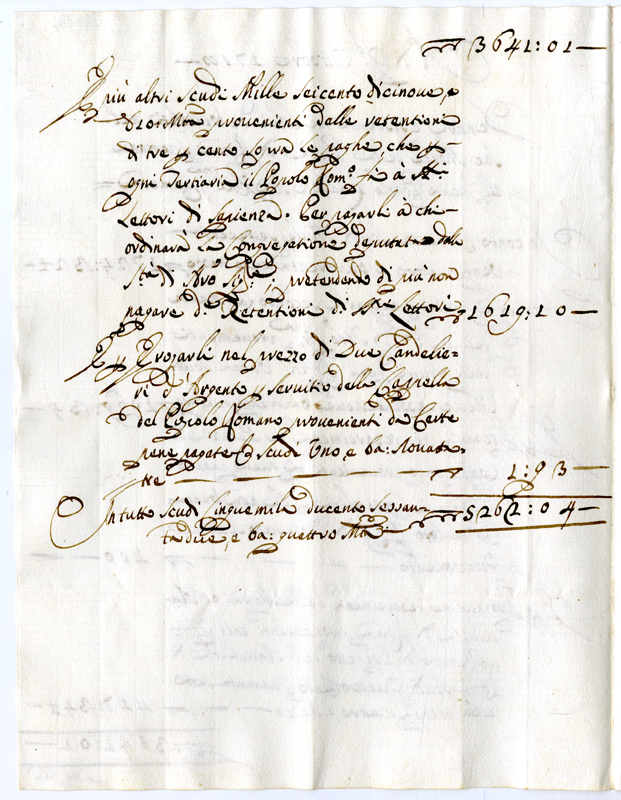 3641:01
E più altri scudi Mille seicento dicinove, e
b. 10: Mta provenienti dalle retentioni
di tre p cento sopra le paghe, che p
ogni Tertiaria il Popolo Rom.o fà à SS.ri
Lettori di Sapienza. Per pagarli à chi
ordinarà la Congregatione deputata dalla
S.tà di Nro Sig.re pretendendo di più non
pagare d.e Retentioni di SS.ri Lettori 1619:10
E p Erogarli nel prezzo di Due Candelie=
ri d'Argento p servitio della Cappella
del Popolo Romano provenienti da Certe
pene pagate scudi Uno, e ba: Novata=
tre 1:93
In tutto scudi Cinquemila ducento sessan= 5262:04
tadue, e ba: quattro Mta